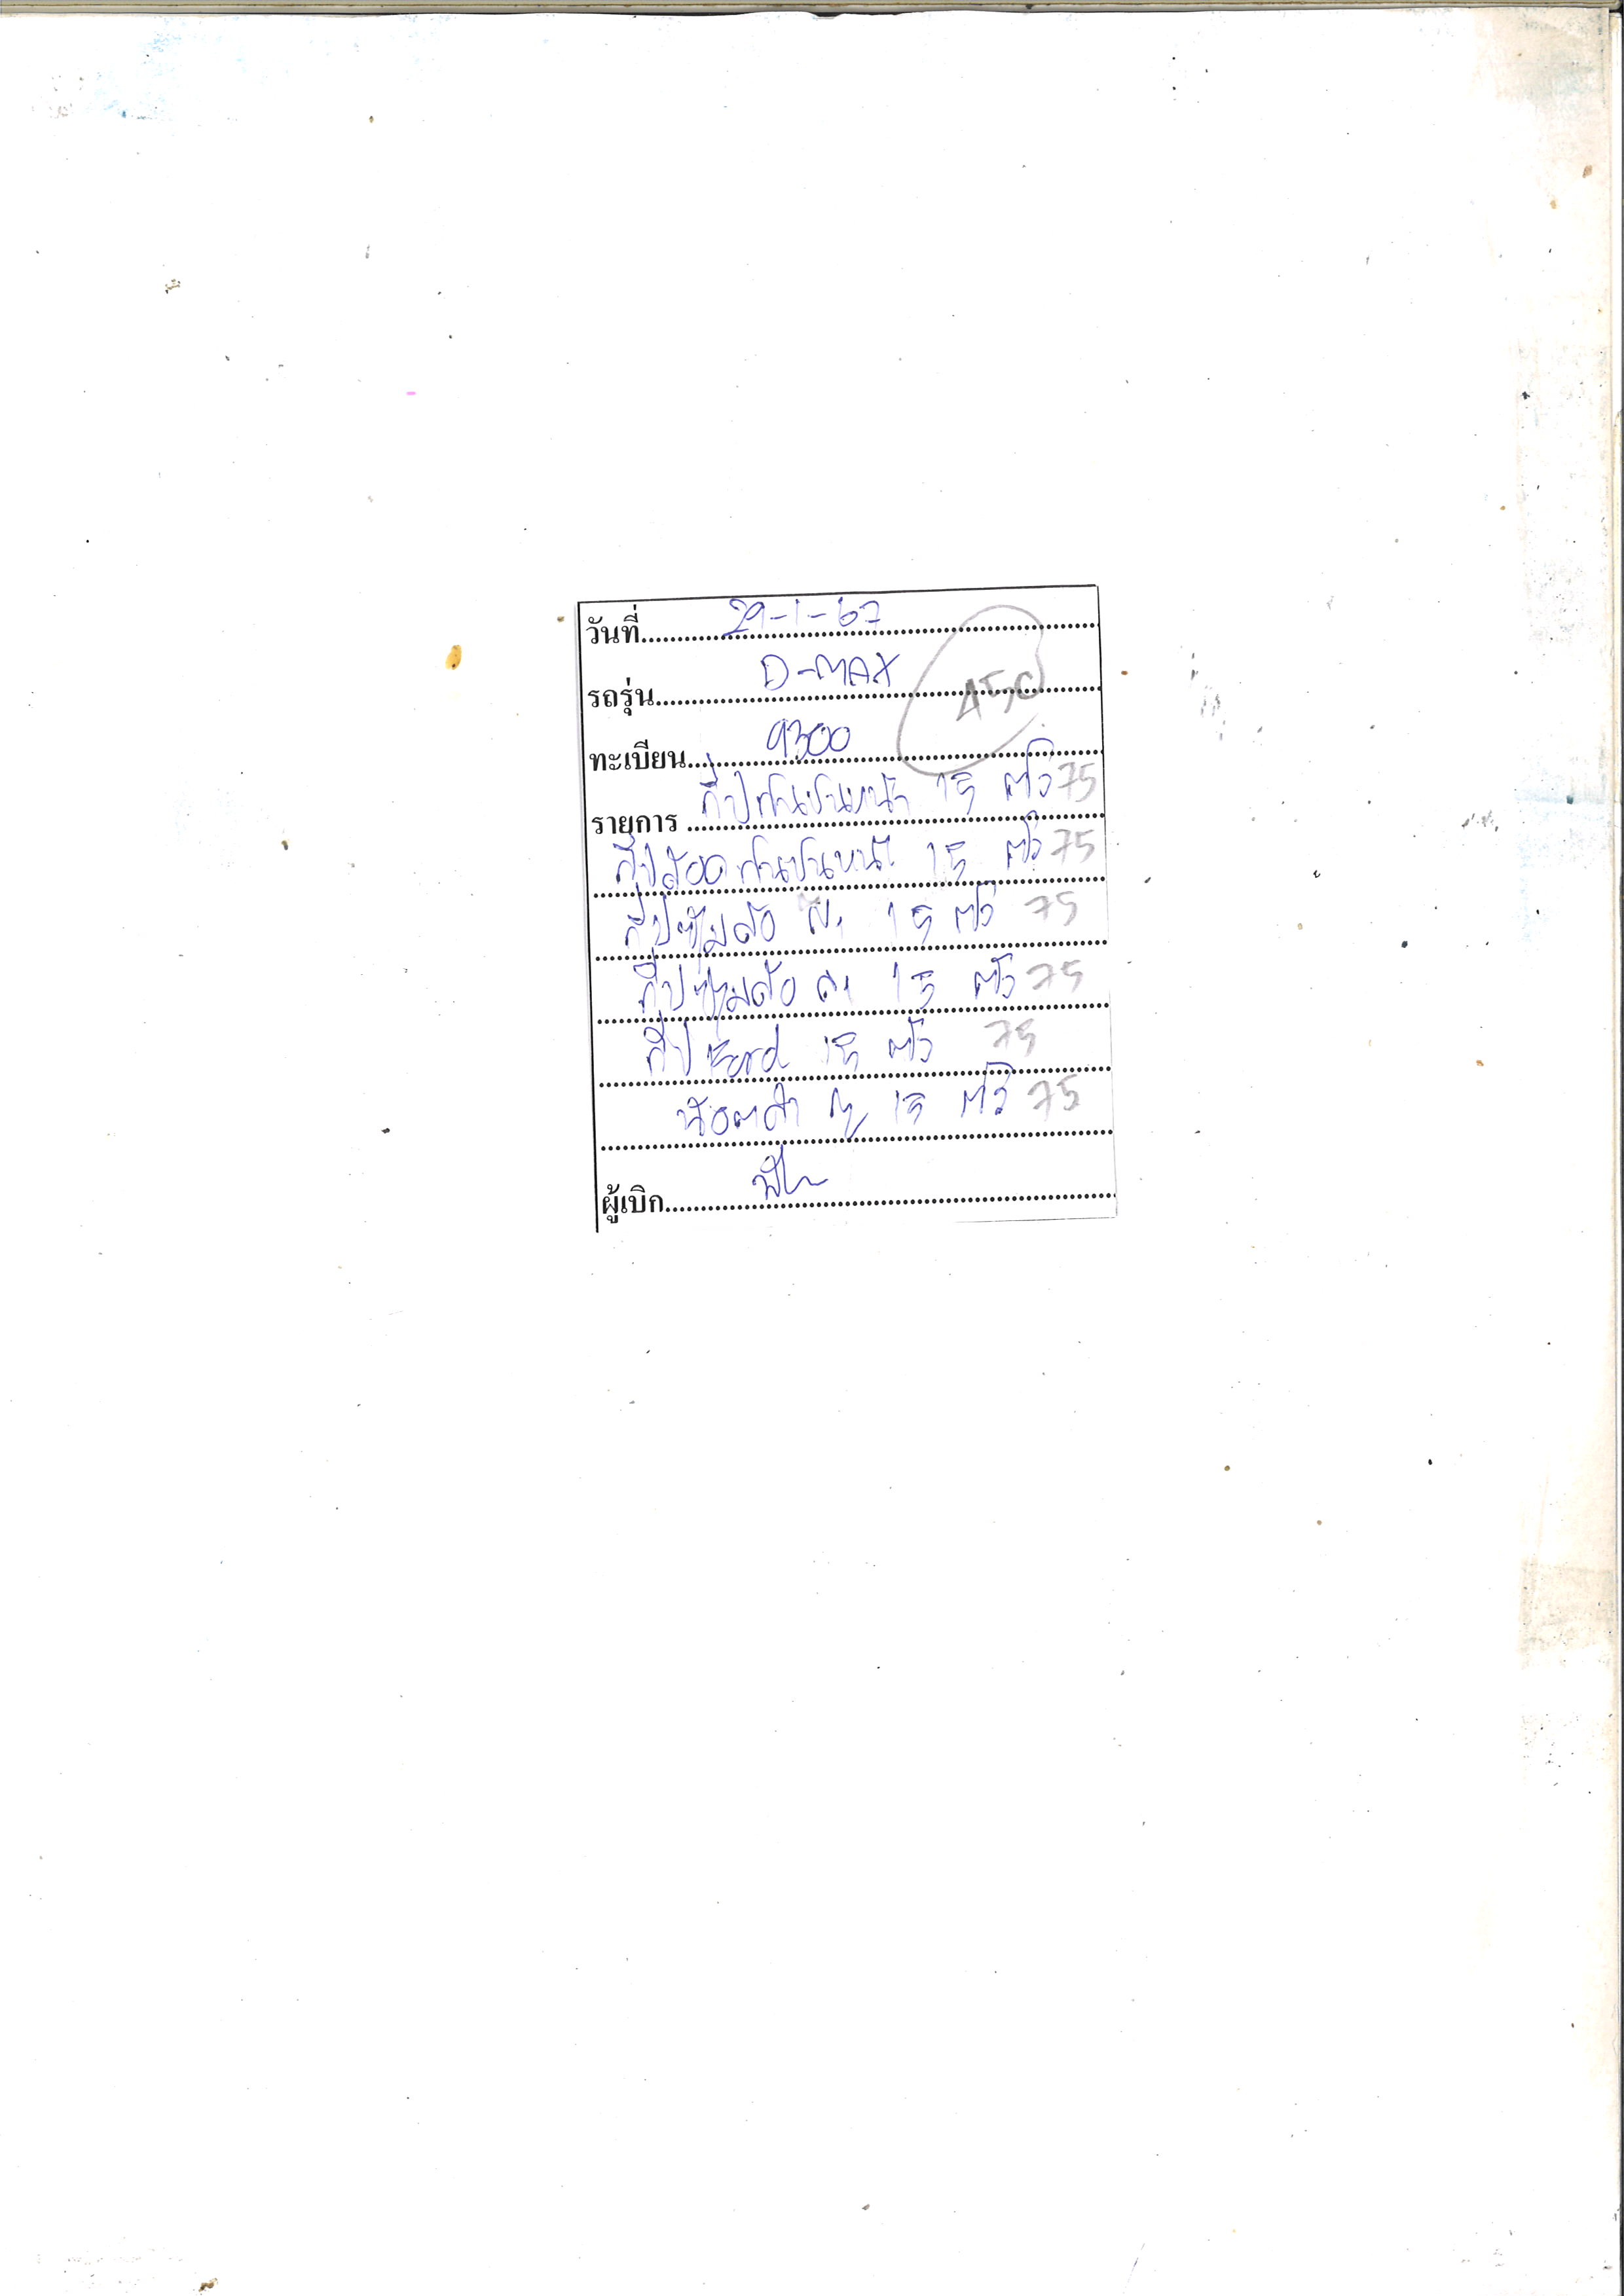 วันที่ 29-1-67
รถรุ่น D-MAX
450
ทะเบียน 9300
รายการ กิ๊ปกันชนหน้า 15 ตัว 75
กิ๊ปล๊อคกันชนหน้า 15 ตัว 75
กิ๊ปซุ้มล้อ 15 ตัว 75
กิ๊ปซุ้มล้อ 15 ตัว 75
กิ๊ป Ford 15 ตัว 75
น๊อตดำ 15 ตัว 75
ผู้เบิก